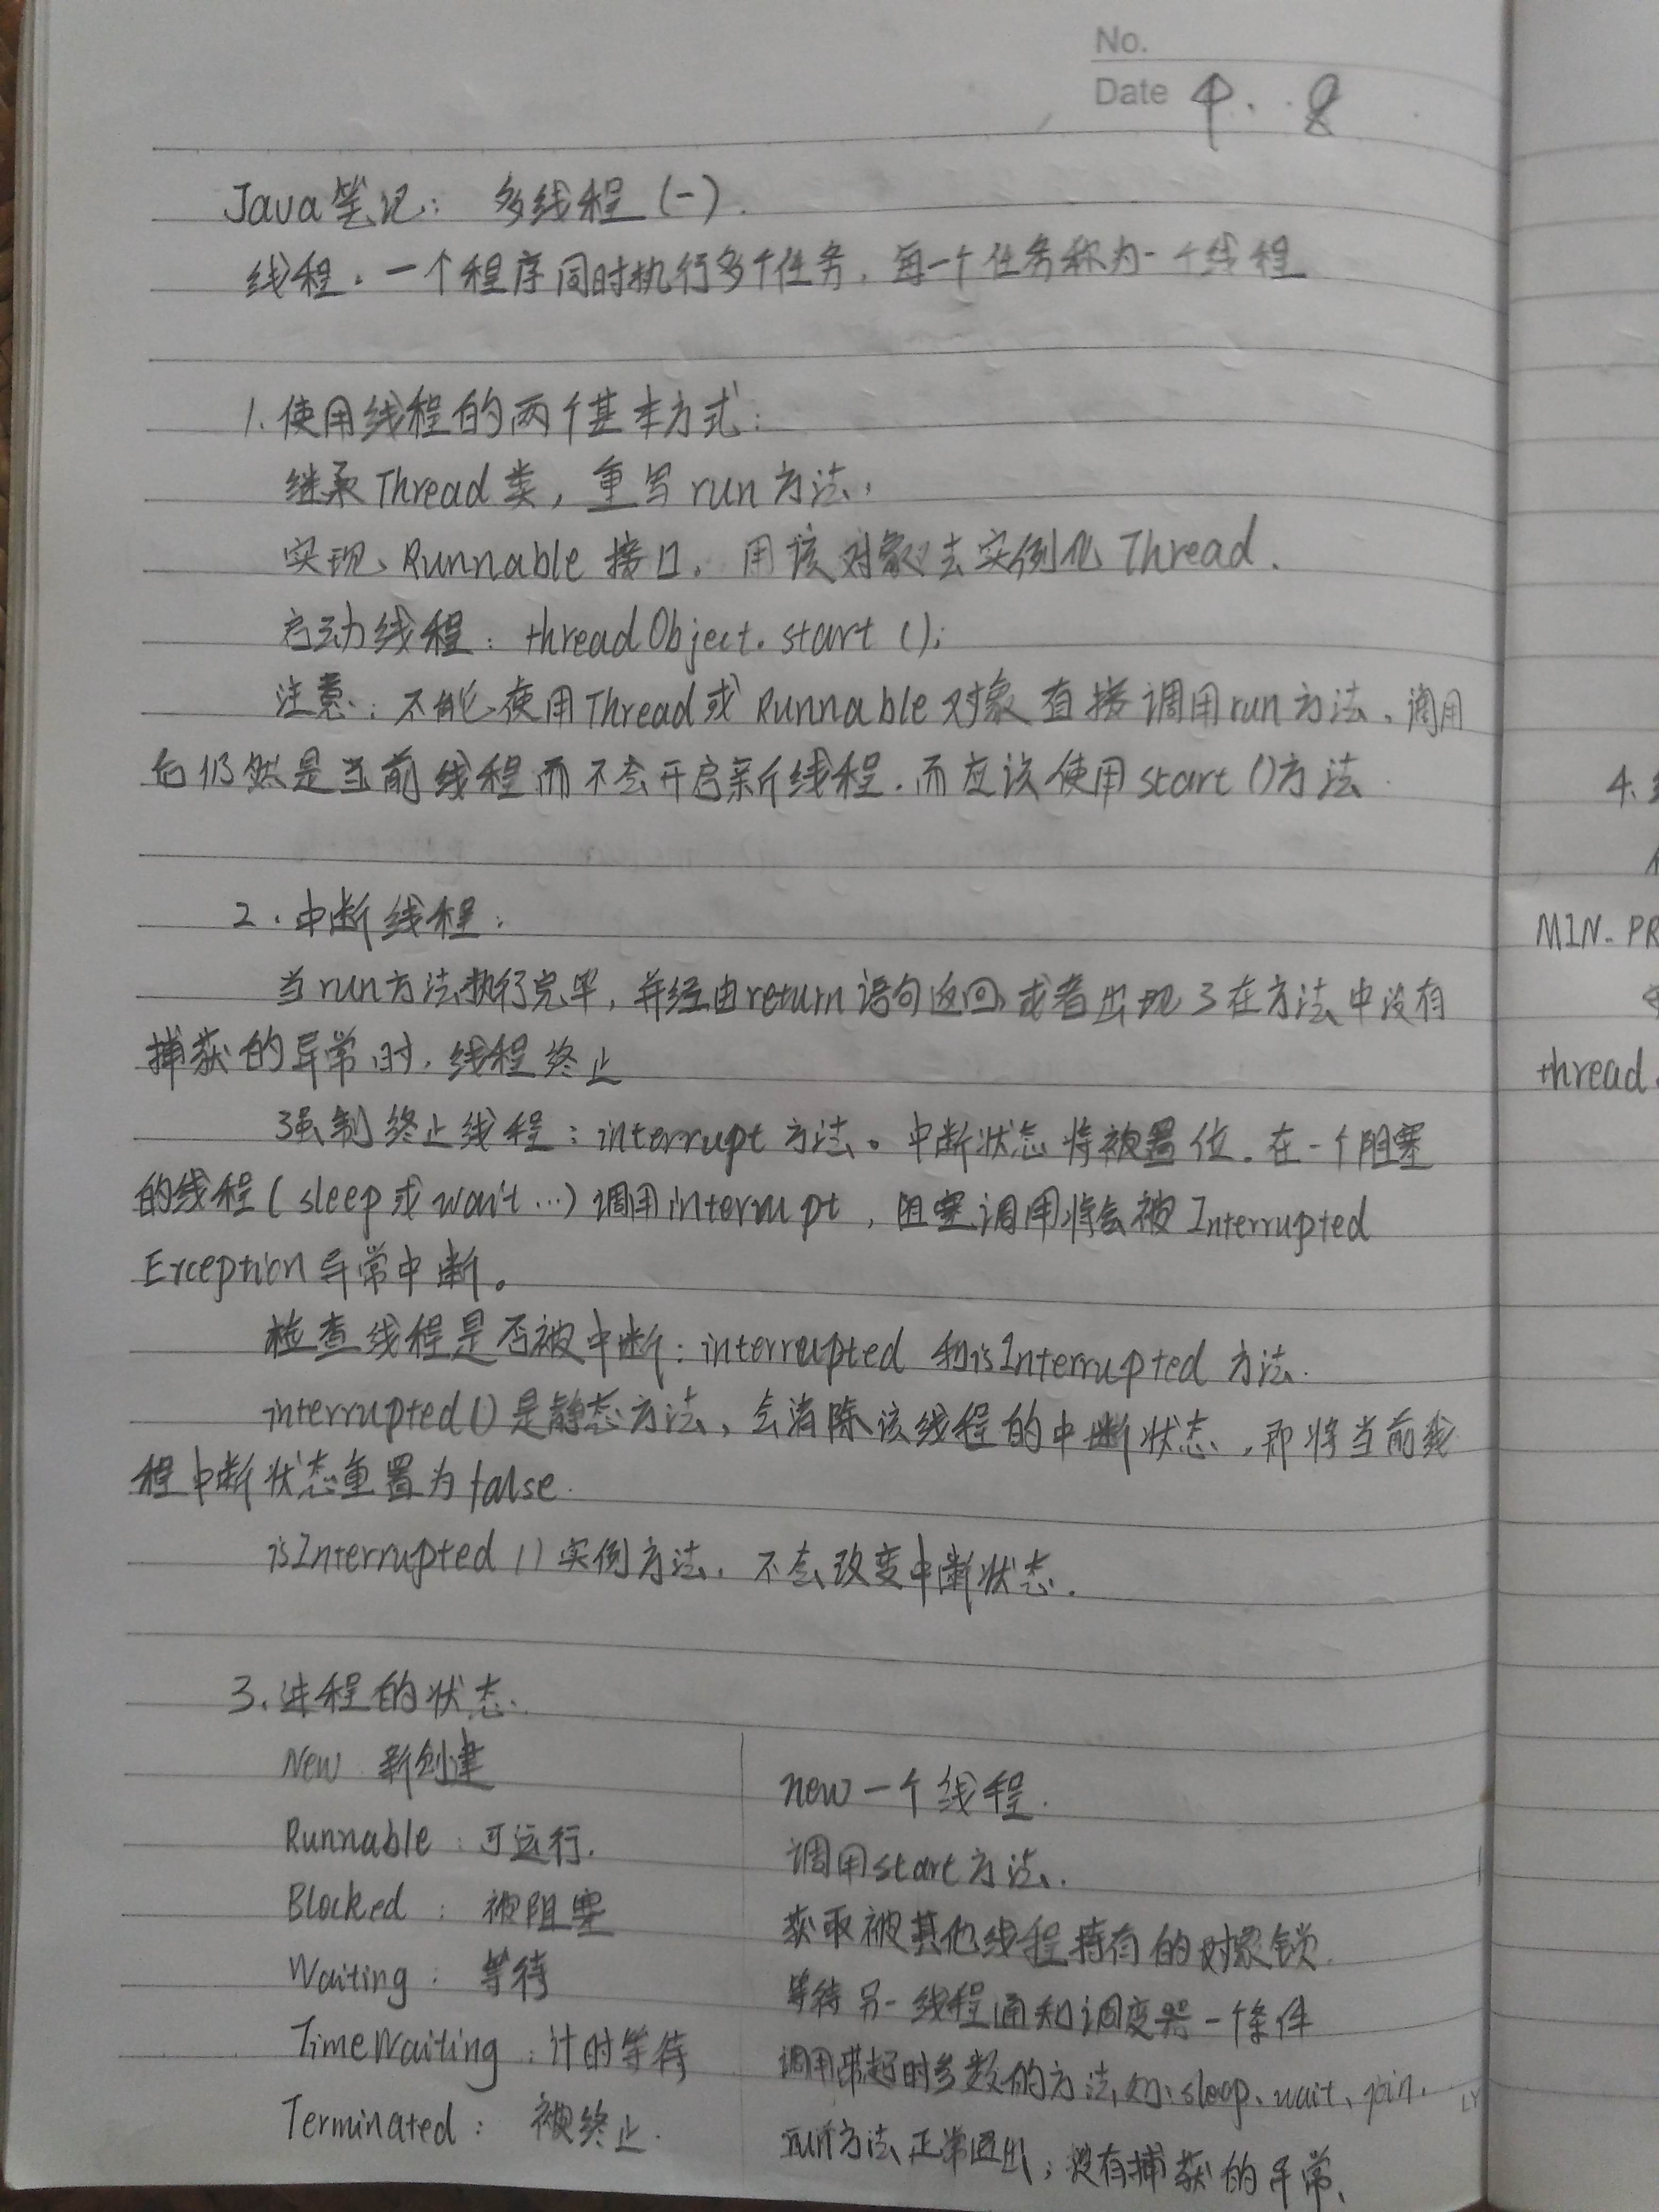 No.
Date 4. 8
Java笔记: 多线程(一).
线程. 一个程序同时执行多个任务, 每一个任务称为一个线程
1. 使用线程的两个基本方式:
继承Thread类, 重写run方法,
实现Runnable接口. 用该对象去实例化Thread.
启动线程: threadObject.start();
注意: 不能使用Thread或Runnable对象直接调用run方法, 调用
后仍然是当前线程而不会开启新线程. 而应该使用start()方法
2. 中断线程:
当run方法执行完毕, 并经由return语句返回, 或者出现了在方法中没有
捕获的异常时, 线程终止
强制终止线程: interrupt方法。中断状态将被置位. 在一个阻塞
的线程(sleep或wait...)调用interrupt, 阻塞调用将会被Interrupted
Exception异常中断。
检查线程是否被中断: interrupted和isInterrupted方法.
interrupted()是静态方法, 会消除该线程的中断状态, 即将当前线
程中断状态重置为false.
isInterrupted()实例方法, 不会改变中断状态.
3. 进程的状态.
New 新创建 new一个线程.
Runnable: 可运行. 调用start方法.
Blocked: 被阻塞 获取被其他线程持有的对象锁.
Waiting: 等待 等待另一线程通知调度器一个条件
TimeWaiting: 计时等待 调用带超时参数的方法, 如: sleep、wait、join.
Terminated: 被终止. run方法正常退出; 没有捕获的异常.
4.
MIN_PR
thread.